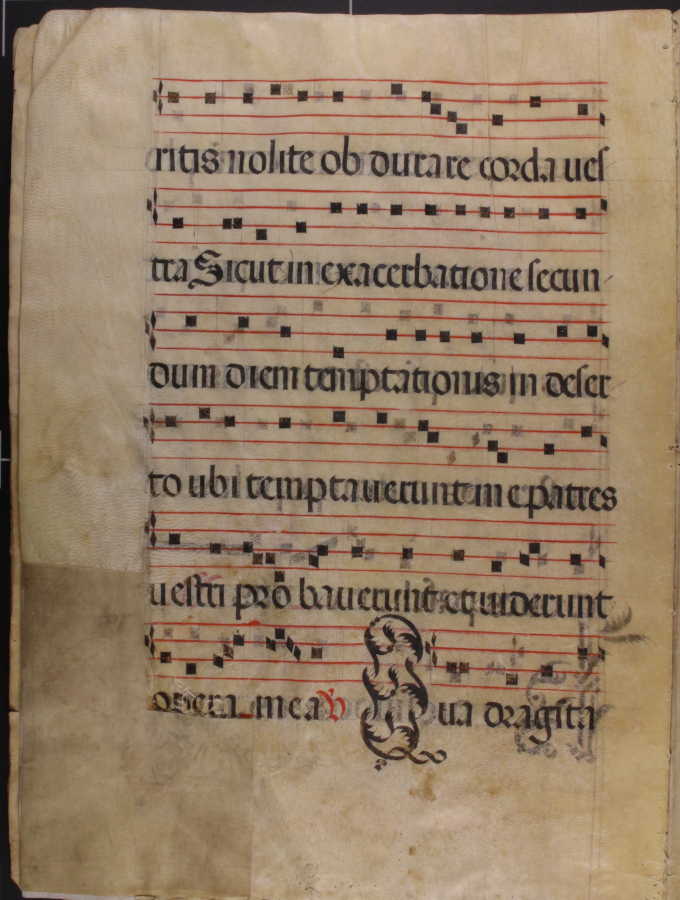 ritis nolite ob durare corda ves
tra Sicut in exacerbatione secun
dum diem temptationis in deser
to ubi temptauerunt me patres
uestri pro bauerunt et uiderunt
opera mea V Qua dragita